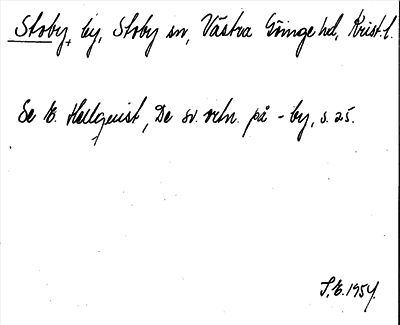 Stoby, by, Stoby sn, Västra Göinge hd, Krist. l.
Se E. Hellquist, De sv. ortn. på -by, s. 25.
S.E. 1954.